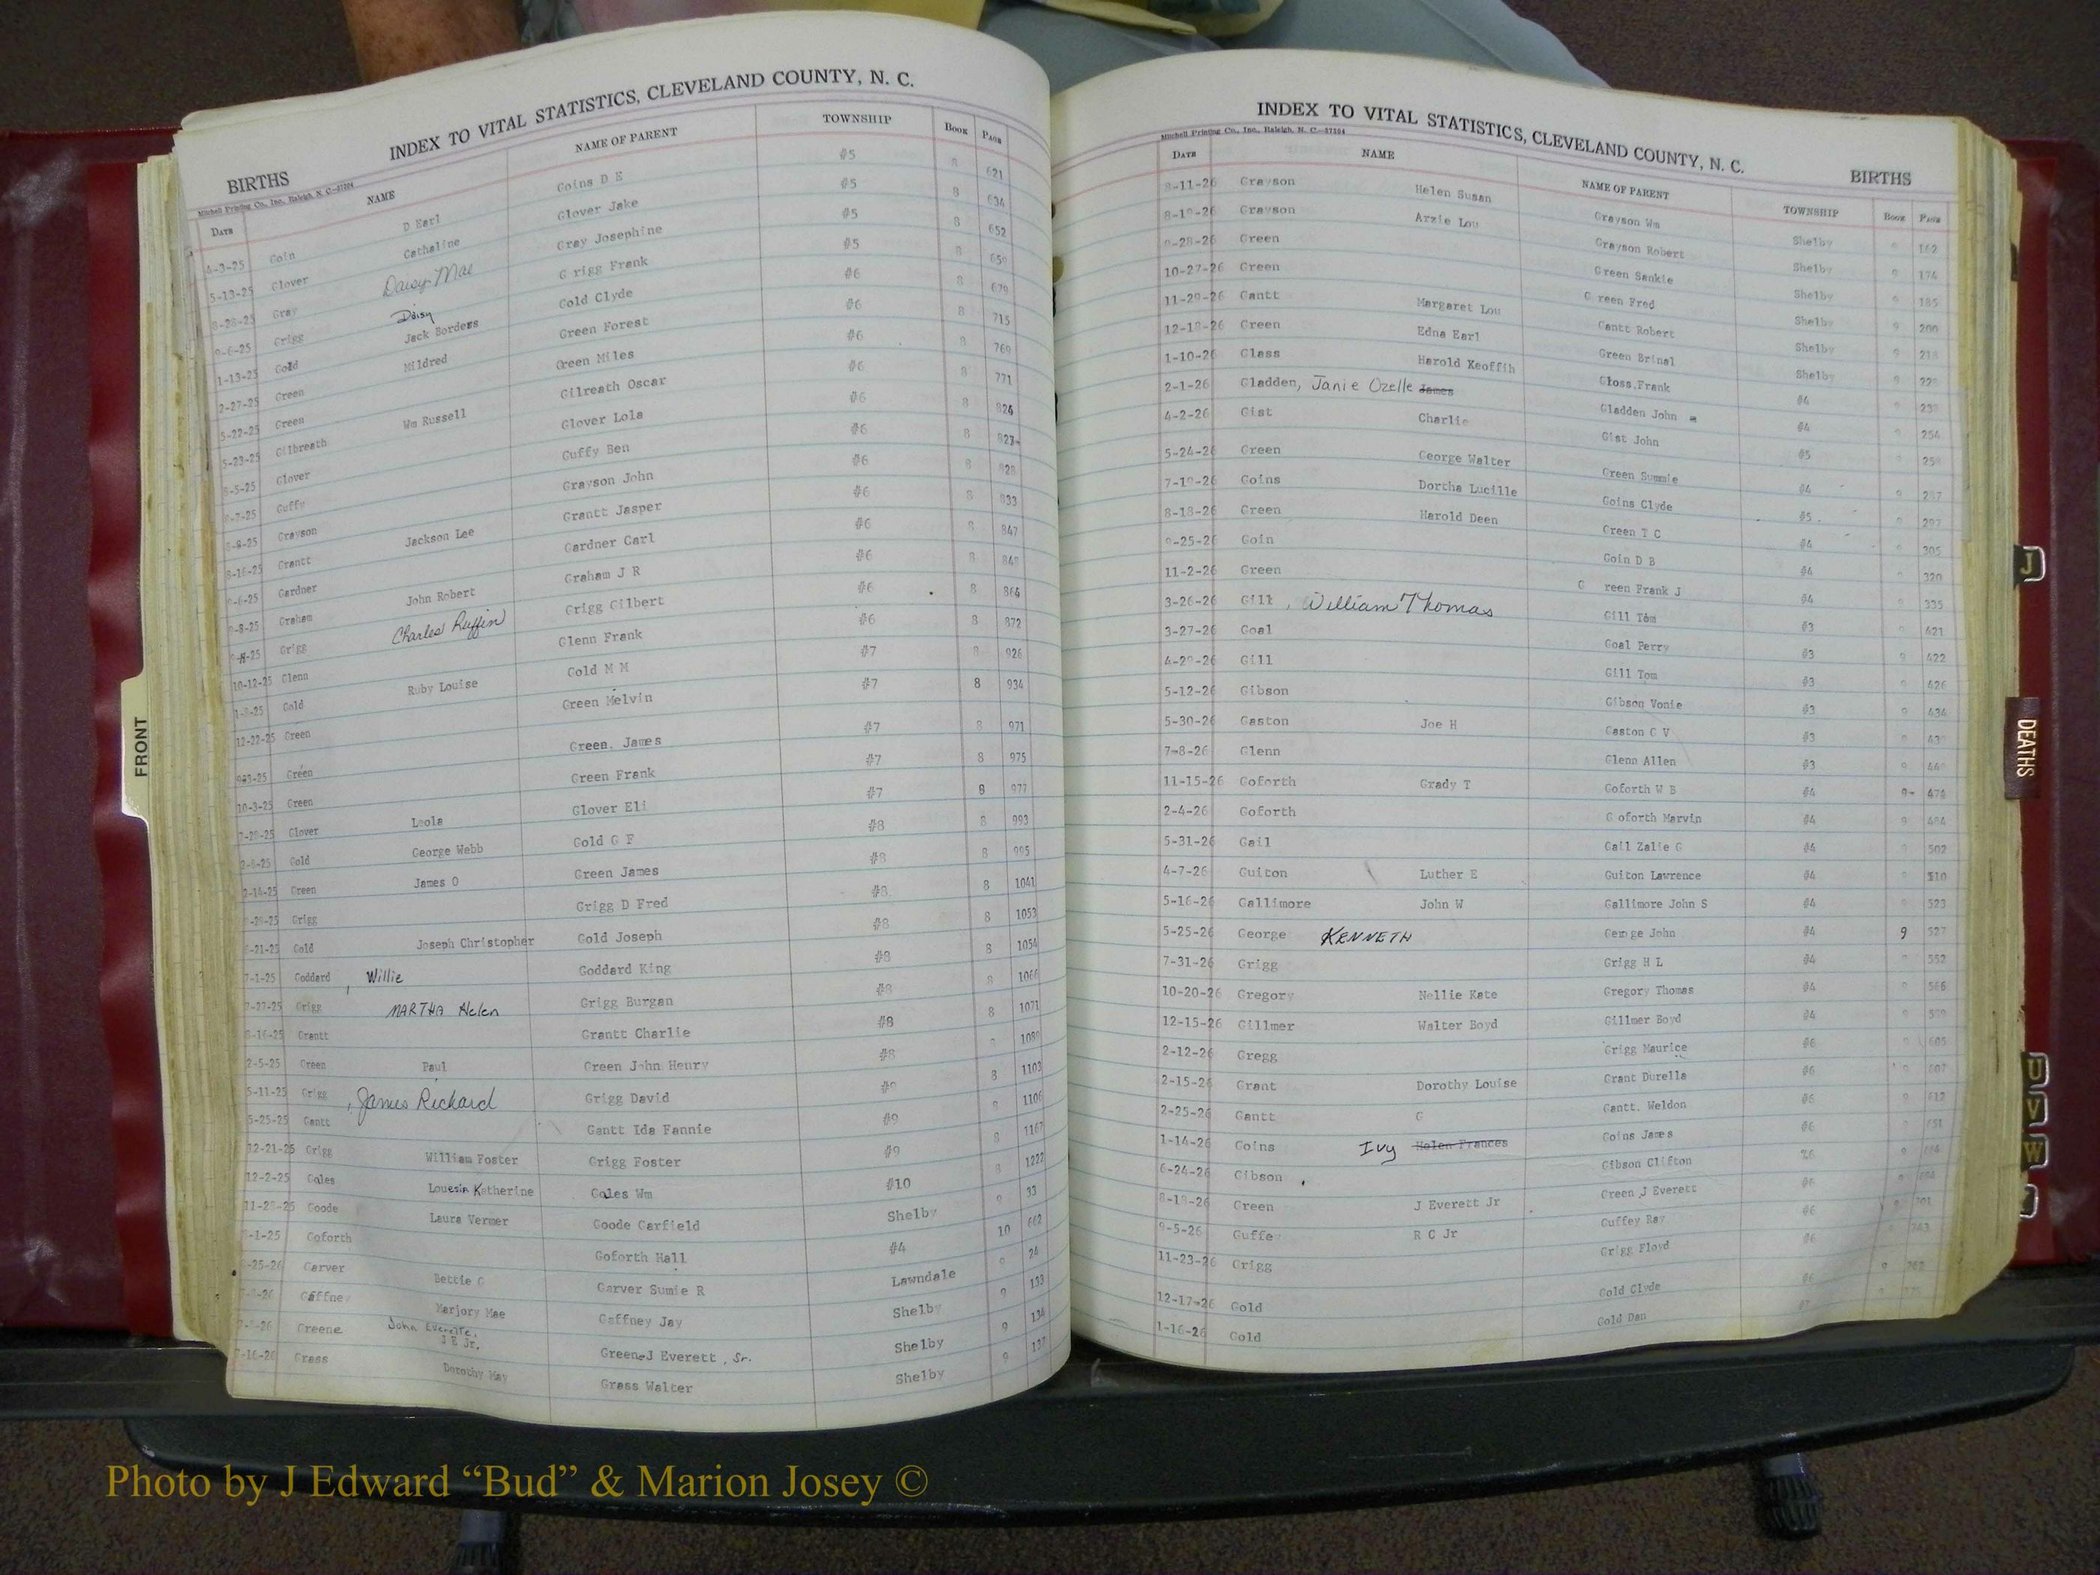 BIRTHS
INDEX TO VITAL STATISTICS, CLEVELAND COUNTY, N. C.
Mitchell Printing Co., Inc., Raleigh, N. C.—57504
DATE NAME NAME OF PARENT TOWNSHIP BOOK PAGE
4-3-25 Goin D Earl Goins D E #5 8 621
5-13-25 Glover Cathaline Glover Jake #5 8 634
8-28-25 Gray Daisy Mae Gray Josephine #5 8 652
9-6-25 Grigg Daisy G rigg Frank #5 8 659
1-13-25 Gold Jack Borders Gold Clyde #6 8 679
2-27-25 Green Mildred Green Forest #6 8 715
5-22-25 Green Green Miles #6 8 769
5-23-25 Gilbreath Wm Russell Gilreath Oscar #6 8 771
8-5-25 Glover Glover Lola #6 8 824
8-7-25 Guffy Guffy Ben #6 8 827
8-8-25 Grayson Grayson John #6 8 828
8-16-25 Grantt Jackson Lee Grantt Jasper #6 8 833
9-6-25 Gardner Gardner Carl #6 8 847
9-8-25 Graham John Robert Graham J R #6 8 848
-25 Grigg Charles Ruffin Grigg Gilbert #6 8 864
10-12-25 Glenn Glenn Frank #6 8 872
1-8-25 Gold Ruby Louise Gold M M #7 8 926
12-22-25 Green Green Melvin #7 8 934
-25 Green Green, James #7 8 971
10-3-25 Green Green Frank #7 8 975
7-28-25 Glover Leola Glover Eli #7 8 977
2-8-25 Gold George Webb Gold G F #8 8 993
2-14-25 Green James O Green James #8 8 995
-25 Grigg Grigg D Fred #8 8 1041
-21-25 Gold Joseph Christopher Gold Joseph #8 8 1053
7-1-25 Goddard , Willie Goddard King #8 8 1054
7-27-25 Grigg MARTHA Helen Grigg Burgan #8 8 1066
8-16-25 Grantt Grantt Charlie #8 8 1071
2-5-25 Green Paul Green John Henry #8 1089
5-11-25 Grigg , James Richard Grigg David #9 8 1103
5-25-25 Gantt Gantt Ida Fannie #9 8 1106
12-21-25 Grigg William Foster Grigg Foster #9 8 1167
12-2-25 Gales Louesia Katherine Gales Wm #10 8 1222
11-28-25 Goode Laura Vermer Goode Garfield Shelby 9 33
-1-25 Goforth Goforth Hall #4 10 662
-25-26 Garver Bettie G Garver Sumie R Lawndale 9 24
-26 Gaffney Marjory Mae Gaffney Jay Shelby 9 133
-26 Greene John Everette, J E Jr. Greene J Everett , Sr. Shelby 9 134
-16-26 Grass Dorothy May Grass Walter Shelby 9 137
INDEX TO VITAL STATISTICS, CLEVELAND COUNTY, N. C.
BIRTHS
Mitchell Printing Co., Inc., Raleigh, N. C.—57504
DATE NAME NAME OF PARENT TOWNSHIP BOOK PAGE
8-11-26 Grayson Helen Susan Grayson Wm Shelby 9 162
8-19-26 Grayson Arzie Lou Grayson Robert Shelby 9 174
9-28-26 Green Green Sankie Shelby 9 185
10-27-26 Green Margaret Lou G reen Fred Shelby 9 200
11-29-26 Gantt Edna Earl Gantt Robert Shelby 9 218
12-18-26 Green Harold Keoffih Green Brinal Shelby 9 228
1-10-26 Glass Gloss,Frank #4 9 238
2-1-26 Gladden, Janie Ozelle James Gladden John #4 9 254
4-2-26 Gist Charlie Gist John #5 9 258
5-24-26 Green George Walter Green Summie #4 9 287
7-19-26 Goins Dortha Lucille Goins Clyde #5 9 297
8-18-26 Green Harold Deen Green T C #4 9 305
9-25-26 Goin Goin D B #4 9 320
11-2-26 Green G reen Frank J #4 9 335
3-26-26 Gill , William Thomas Gill Tom #3 9 421
3-27-26 Goal Goal Perry #3 9 422
4-29-26 Gill Gill Tom #3 9 426
5-12-26 Gibson Gibson Vonie #3 9 434
5-30-26 Gaston Joe H Gaston G V #3 9
7-8-26 Glenn Glenn Allen #3 9
11-15-26 Goforth Grady T Goforth W B #4 9- 474
2-4-26 Goforth G oforth Marvin #4 9 484
5-31-26 Gail Gail Zalie G #4 9 502
4-7-26 Guiton Luther E Guiton Lawrence #4 9 510
5-16-26 Gallimore John W Gallimore John S #4 9 523
5-25-26 George KENNETH George John #4 9 527
7-31-26 Grigg Grigg H L #4 9 552
10-20-26 Gregory Nellie Kate Gregory Thomas #4 9 566
12-15-26 Gillmer Walter Boyd Gillmer Boyd #4 9
2-12-26 Gregg Grigg Maurice #6 9 605
2-15-26 Grant Dorothy Louise Grant Durella #6 9 607
2-25-26 Gantt G Gantt. Weldon #6 9 612
1-14-26 Goins Ivy Helen Frances Goins James #6 9 651
6-24-26 Gibson Gibson Clifton #6 9
8-18-26 Green J Everett Jr Green J Everett #6 9
9-5-26 Guffe R C Jr Guffey Ray #6 9 701
11-23-26 Grigg Grigg Floyd #6 743
12-17-26 Gold Gold Clyde #6 9 762
1-16-26 Gold Gold Dan #7
FRONT
J
DEATHS
U
V
W
Photo by J Edward “Bud” & Marion Josey ©